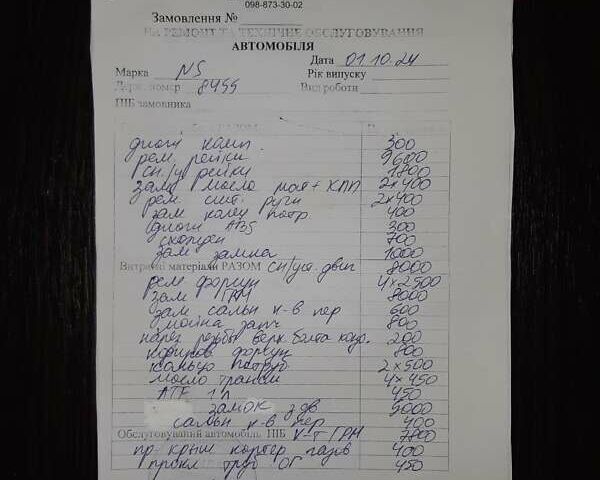 098-873-30-02
Замовлення №
НА РЕМОНТ ТА ТЕХНІЧНЕ ОБСЛУГОВУВАННЯ
АВТОМОБІЛЯ
Дата 01.10.24
Марка NS Рік випуску
Держ. номер 8455 Вид роботи
ПІБ замовника
диагн комп. 300
рем. рейки 9600
сн/у рейки 1800
зам масло мот + КПП 2×400
рем. сист. ручн 2×400
зам. колец патр 400
диагн ABS 300
700
зам замка 1000
Витратні матеріали РАЗОМ сн/уст двиг 8000
рем форсун 4×2500
зам ГРМ 8000
зам. сальн к-в пер 600
мойка запч 800
нарез резьбы верх. болта конд. 200
кодиров форсун 800
кольцо патруб 2×500
масло трансм 4×450
ATF 1л 450
замок з дв 5000
сальн к-в пер 400
Обслуговуваний автомобіль ПІБ к-т ГРМ 7800
пр. крыш картер газов 400
прокл труб ОГ 450